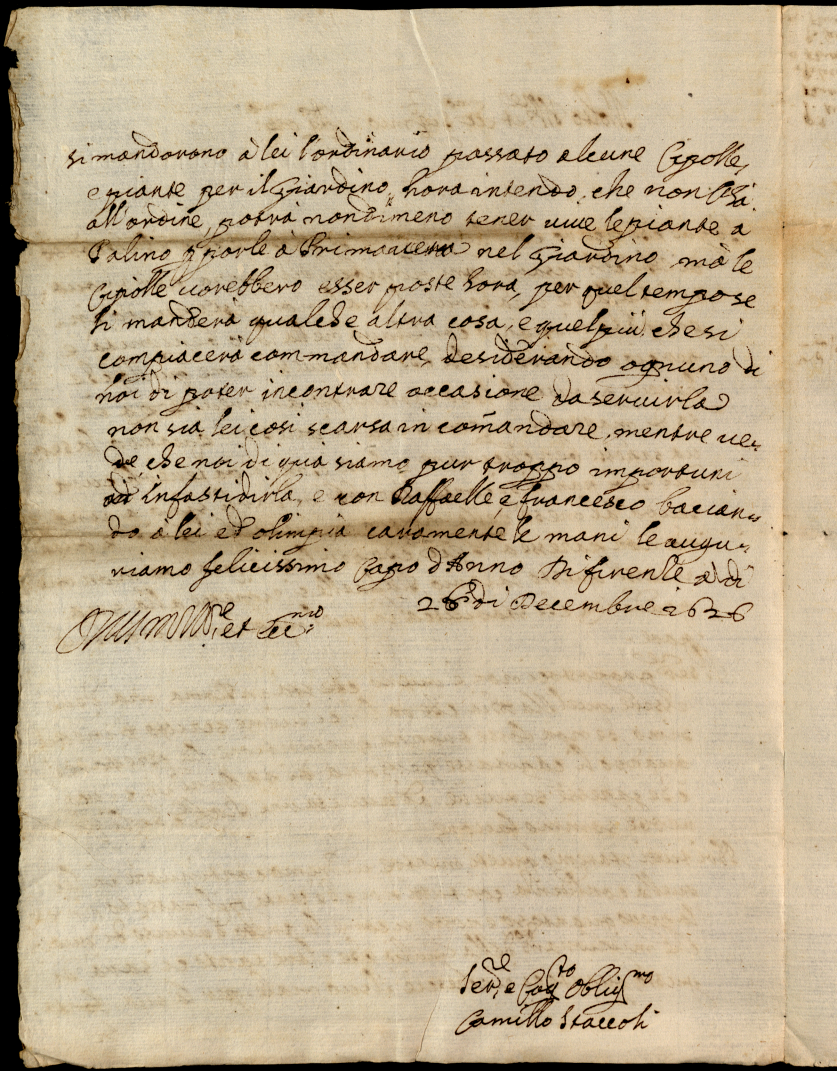 si mandorono à lei l'ordinario passato alcune Cipolle,
e piante per il Giardino, hora intendo, che non l'ha
all'ordine, potrà nondimeno tener vive le piante a
Palino p porle à Primavera nel Giardino mà le
Cipolle vorebbero esser poste hora, per quel tempo se
li manderà qualche altra cosa, e quel più, che si
compiacerà commandare, desiderando ognuno di
noi di poter incontrare occasione da servirla
non sia lei così scarsa in com̃andare, mentre ve-
de, che noi di quà siamo pur troppo importuni
ad infastidirla, e con Raffaelle, e francesco bacian-
do à lei ed olimpia caramente le mani le augu-
riamo felicissimo Capo d'Anno Di firenze a di
26 di Decembre 1626
et
Ser.re e Cog.to Oblig.mo
Camillo Staccoli